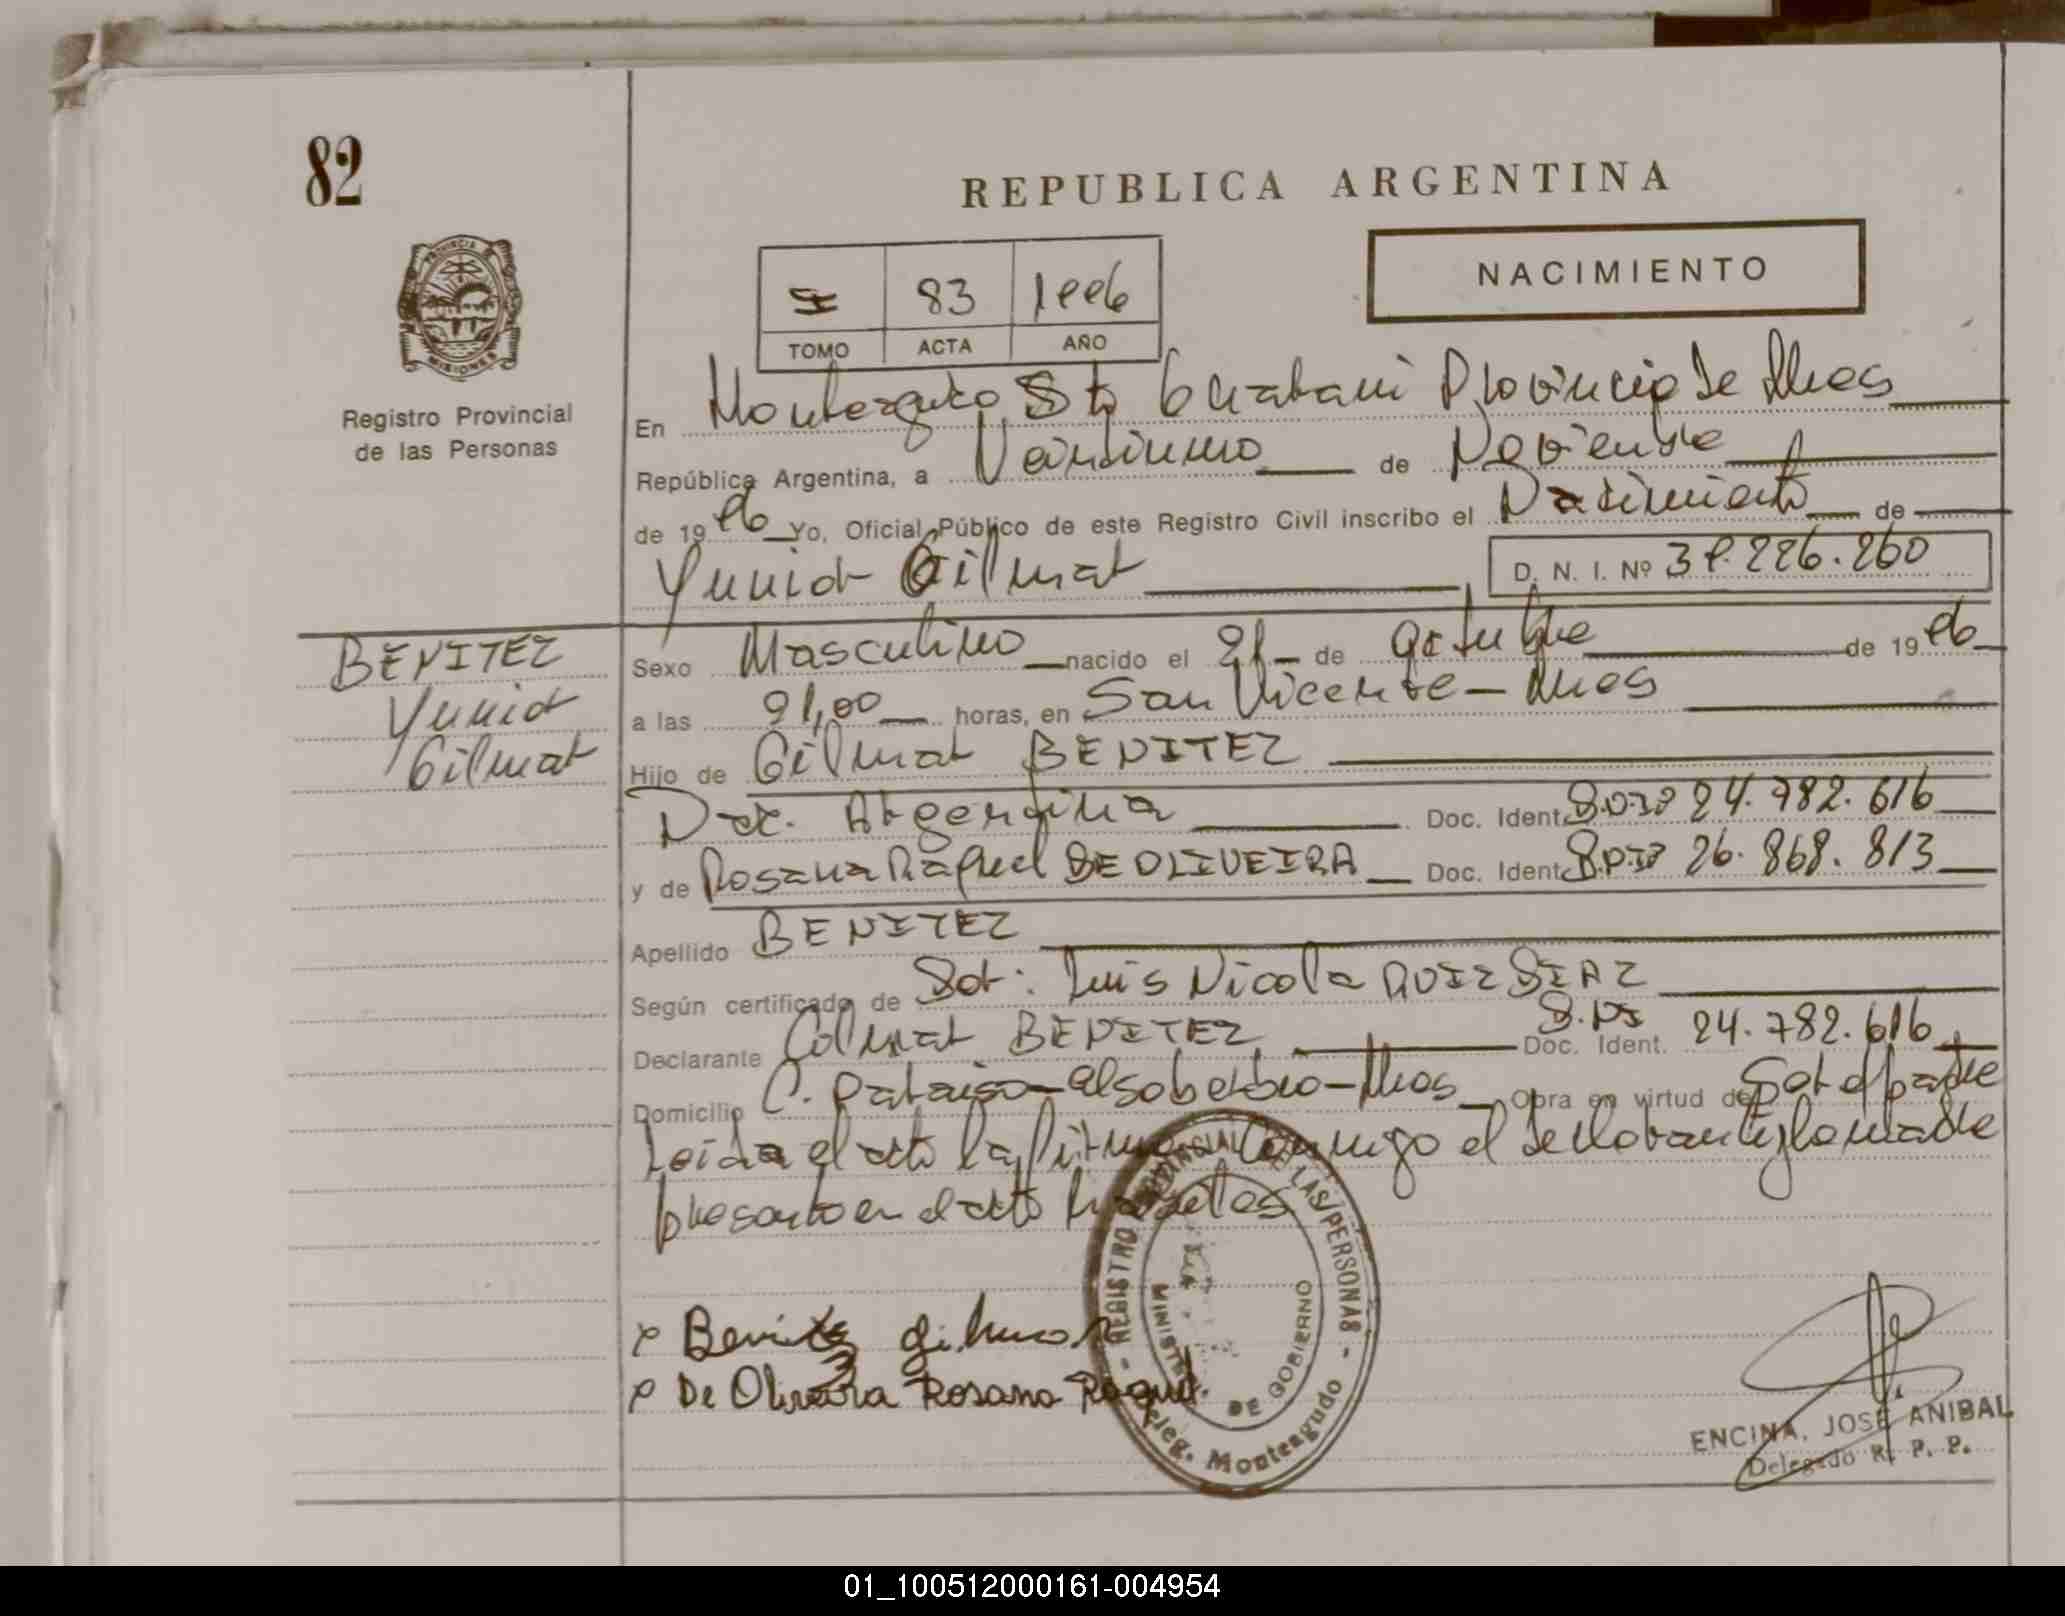 82
REPUBLICA ARGENTINA
NACIMIENTO
83 1996
TOMO ACTA AÑO
PROVINCIA DE MISIONES
Registro Provincial
de las Personas
En Monteagudo Dto Guarani Provincia de Mnes
República Argentina, a Veintiuno de Noviembre
de 1996 Yo, Oficial Público de este Registro Civil inscribo el Nacimiento de
Yunior Gilmar D. N. I. Nº 39.226.260
BENITEZ
Yunior
Gilmar
Sexo Masculino nacido el 21 de octubre de 1996
a las 21,00 horas, en San Vicente - Mnes
Hijo de Gilmar BENITEZ
Nac. Argentina Doc. Ident. D.N.I. 24.782.616
y de Rosana Raquel DE OLIVEIRA Doc. Ident. D.N.I. 26.868.813
Apellido BENITEZ
Según certificado de Dot: Luis Nicola RUIZ DIAZ
Declarante Gilmar BENITEZ D.NI Doc. Ident. 24.782.616
Domicilio C. Paraiso - El Soberbio - Mnes Obra en virtud de Ser el padre
Leida el acta la firma conmigo el declarante y la madre
presente en el acto
x Benitez gilmar
x De Oliveira Rosana Raquel
REGISTRO PROVINCIAL DE LAS PERSONAS
MINIST. DE GOBIERNO
Deleg. Monteagudo
ENCINA, JOSE ANIBAL
Delegado R. P. P.
01_100512000161-004954